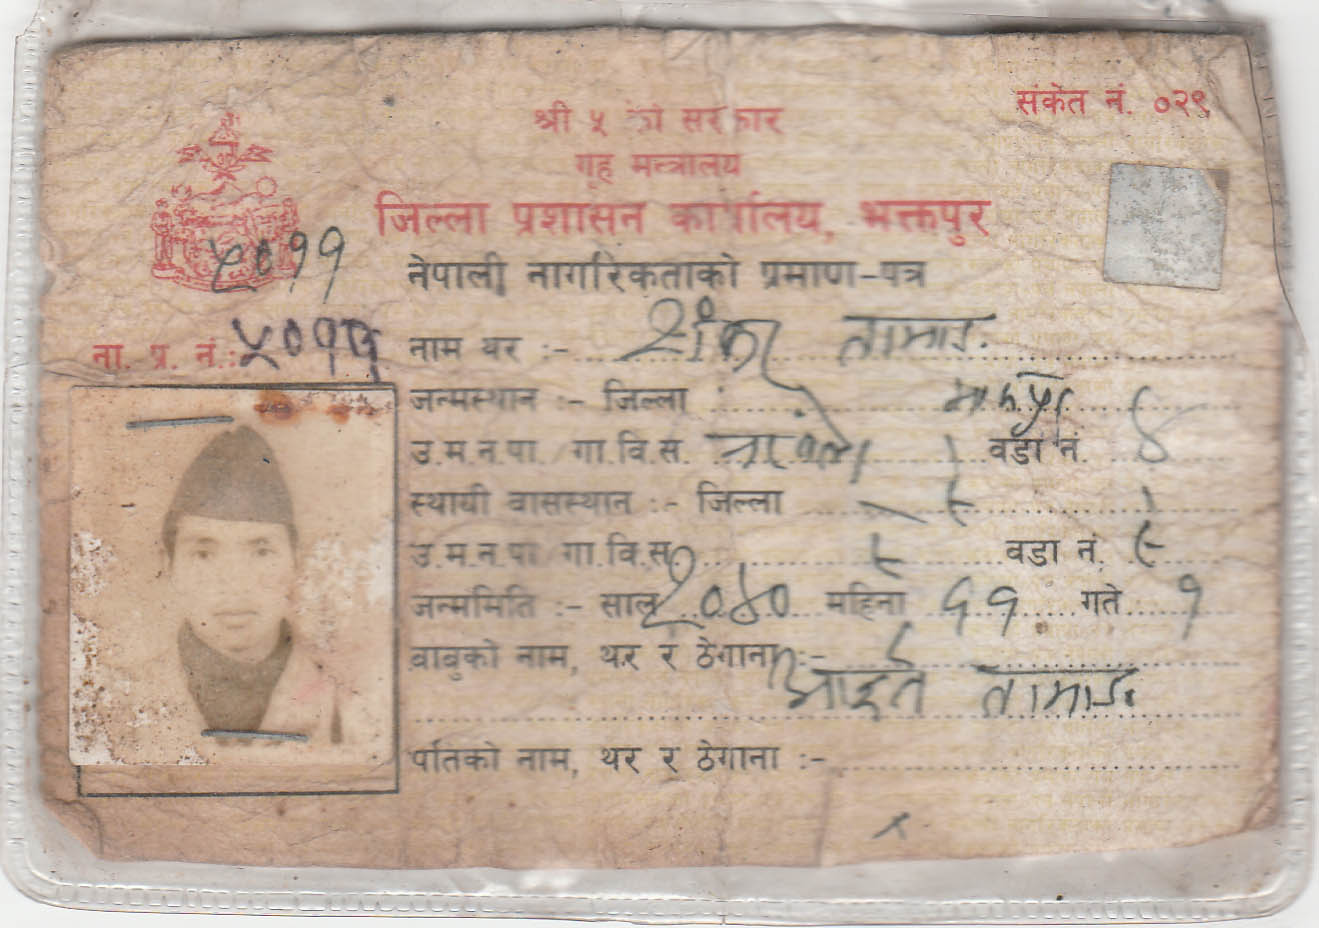 संकेत नं. ०२९
श्री ५ को सरकार
गृह मन्त्रालय
जिल्ला प्रशासन कार्यालय, भक्तपुर
५०११
नेपाली नागरिकताको प्रमाण-पत्र
ना. प्र. नं.:
नाम थर :- तामाङ
जन्मस्थान :- जिल्ला
उ.म.न.पा. गा.वि.स. वडा नं. ४
स्थायी बासस्थान :- जिल्ला
उ.म.न.पा. गा.वि.स. वडा नं.
जन्ममिति :- साल २०४० महिना ११ गते १
बाबुको नाम, थर र ठेगाना :-
आइते तामाङ
पतिको नाम, थर र ठेगाना :-